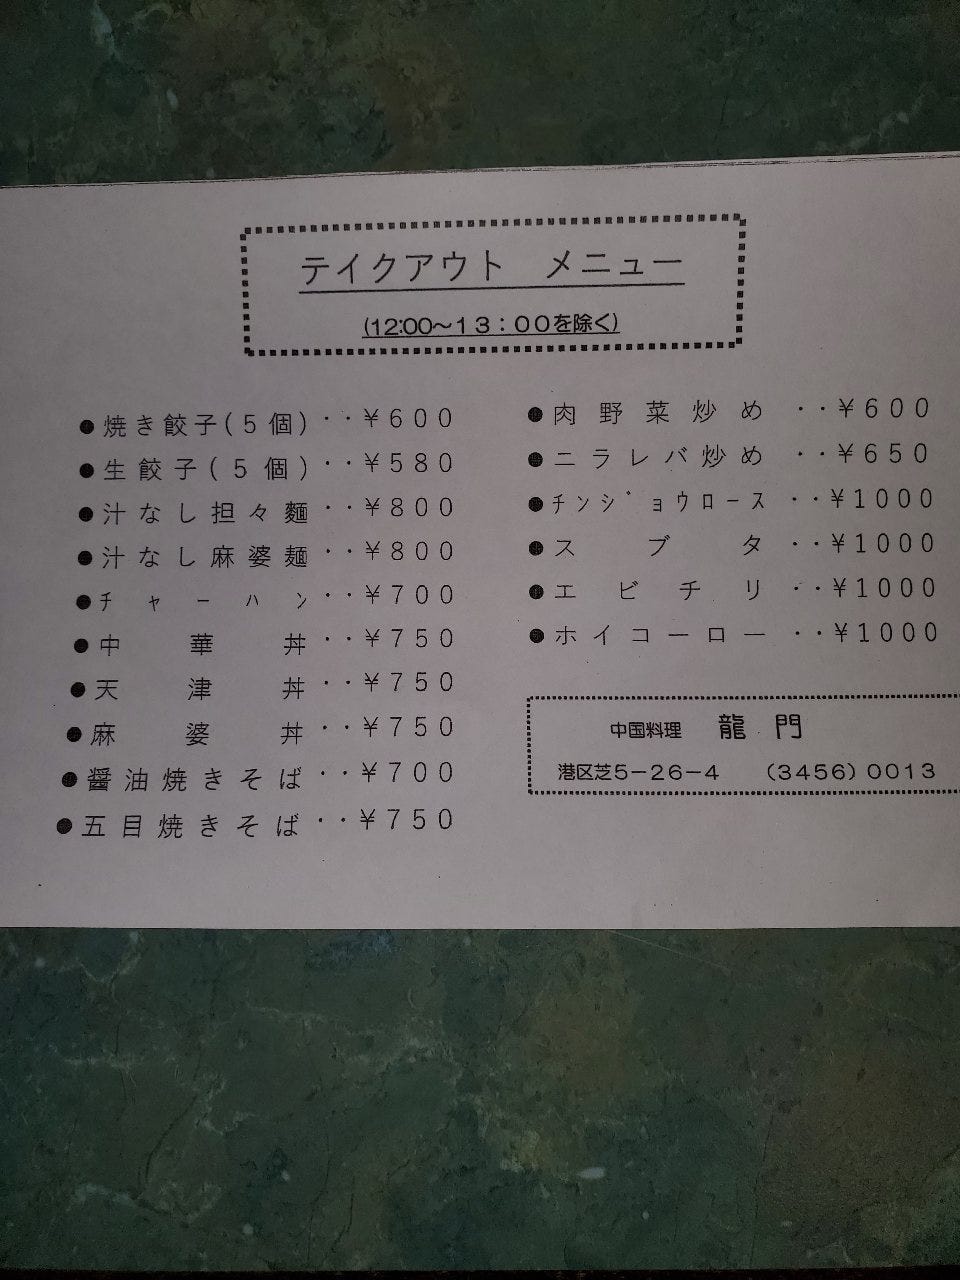 テイクアウト　メニュー
(12:00～１３：００を除く)
●焼き餃子(５個)‥￥６００
●生餃子(５個)‥￥５８０
●汁なし担々麵‥￥８００
●汁なし麻婆麺‥￥８００
●ﾁｬｰﾊﾝ‥￥７００
●中華丼‥￥７５０
●天津丼‥￥７５０
●麻婆丼‥￥７５０
●醤油焼きそば‥￥７００
●五目焼きそば‥￥７５０
●肉野菜炒め‥￥６００
●ニラレバ炒め‥￥６５０
●ﾁﾝｼﾞｮｳﾛｰｽ‥￥１０００
●スブタ‥￥１０００
●エビチリ‥￥１０００
●ホイコーロー‥￥１０００
中国料理　龍門
港区芝５－２６－４　（３４５６）００１３